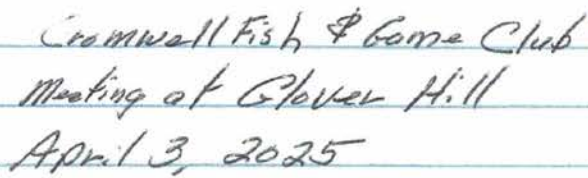 Cromwell Fish & Game Club
Meeting at Glover Hill
April 3, 2025